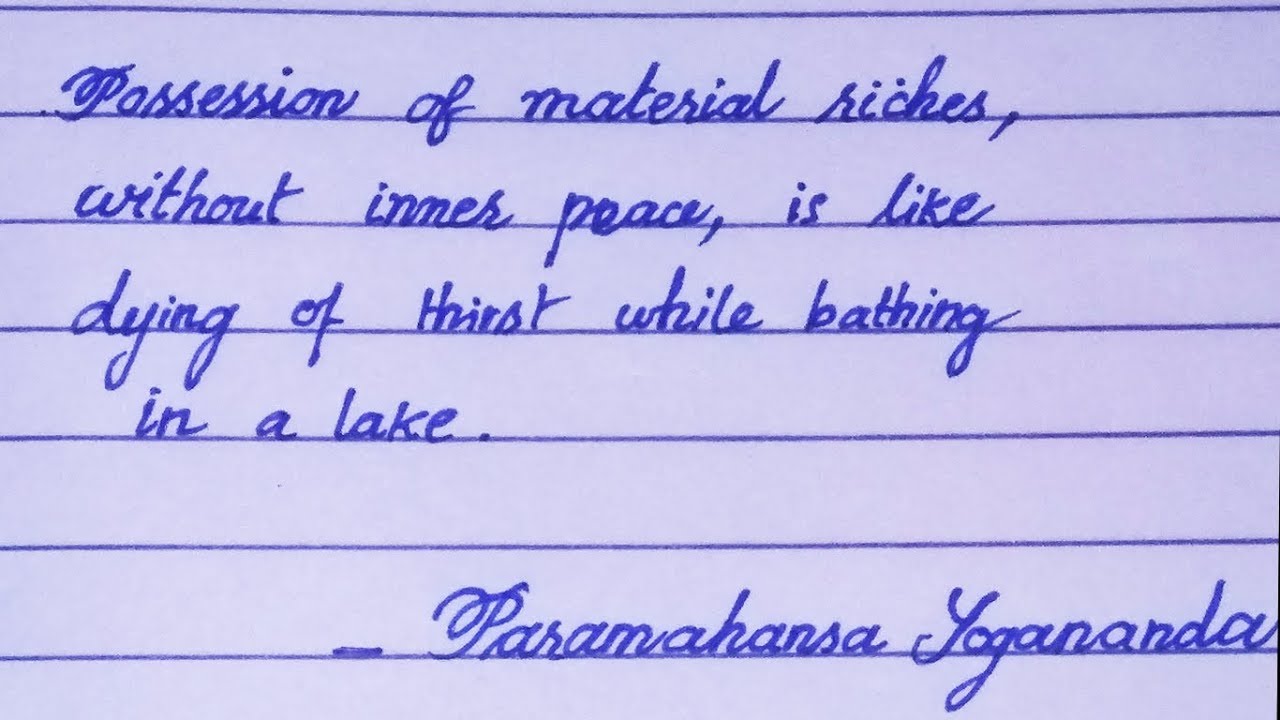 Possession of material riches,
without inner peace, is like
dying of thirst while bathing
in a lake.
– Paramahansa Yogananda